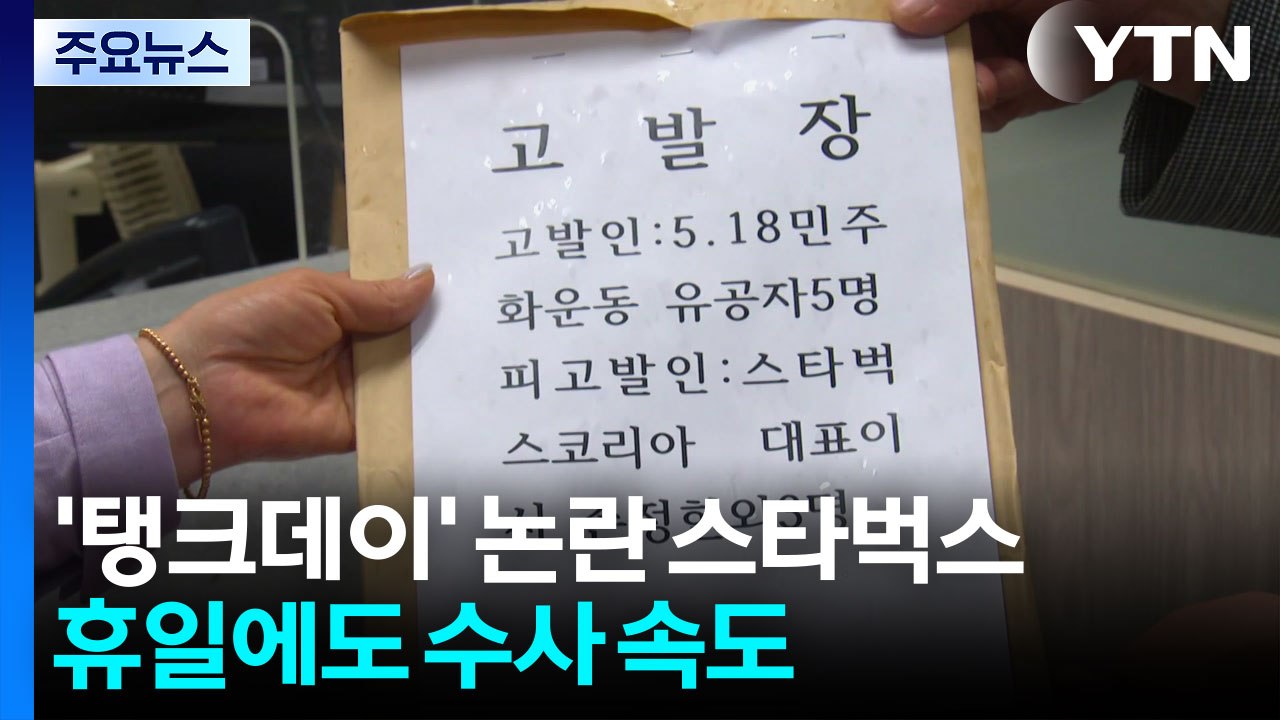 주요뉴스
YTN
고 발 장
고발인:5.18민주
화운동 유공자5명
피고발인:스타벅
스코리아 대표이
'탱크데이' 논란 스타벅스
휴일에도 수사 속도